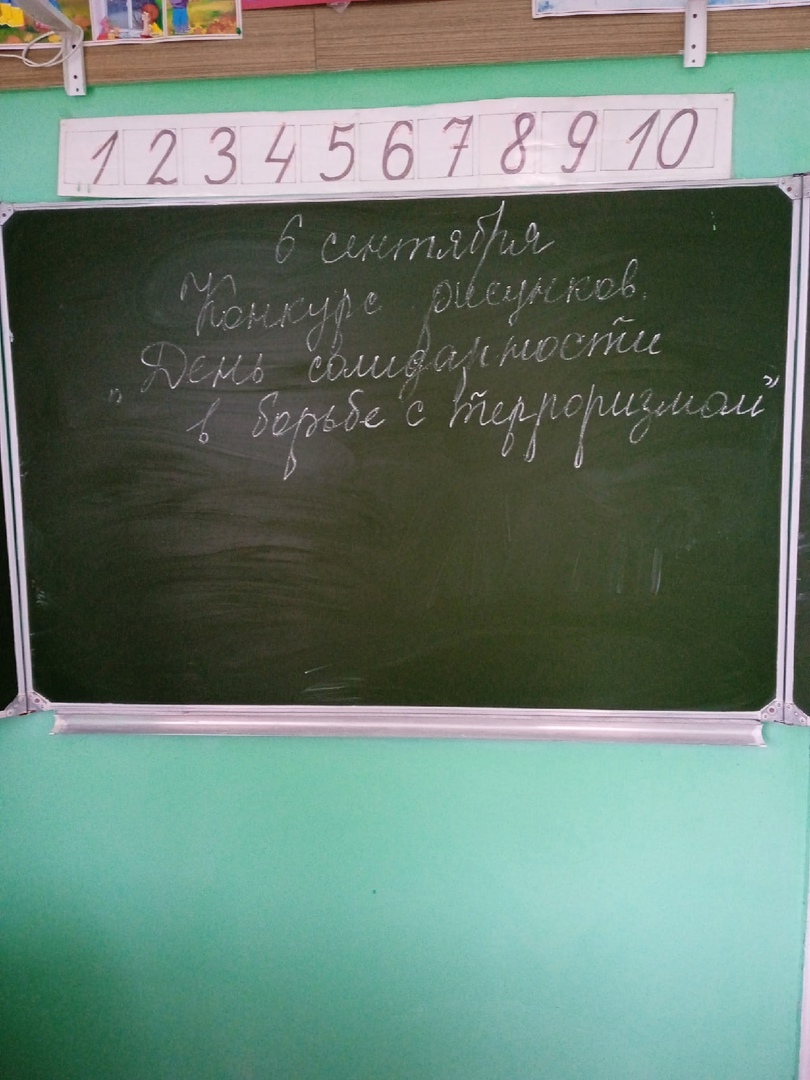 1 2 3 4 5 6 7 8 9 10
6 сентября
Конкурс рисунков.
"День солидарности
в борьбе с терроризмом"